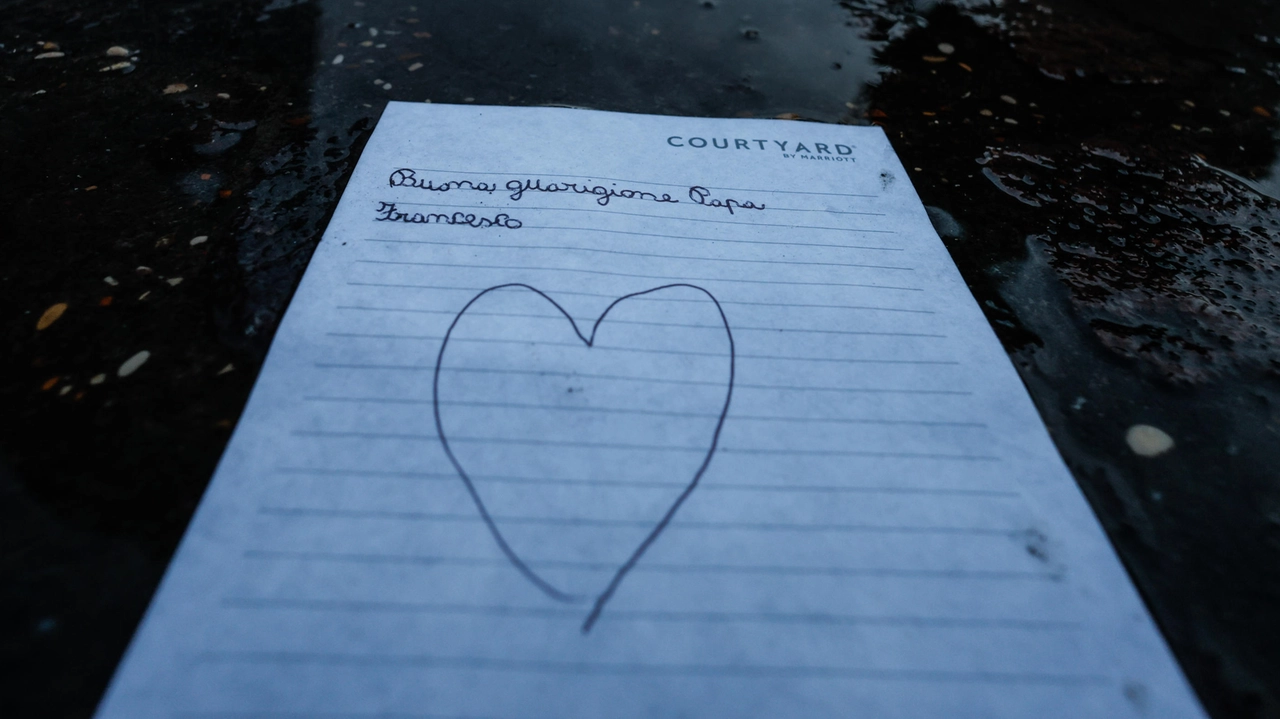 COURTYARD®
BY MARRIOTT
Buona guarigione Papa
Francesco